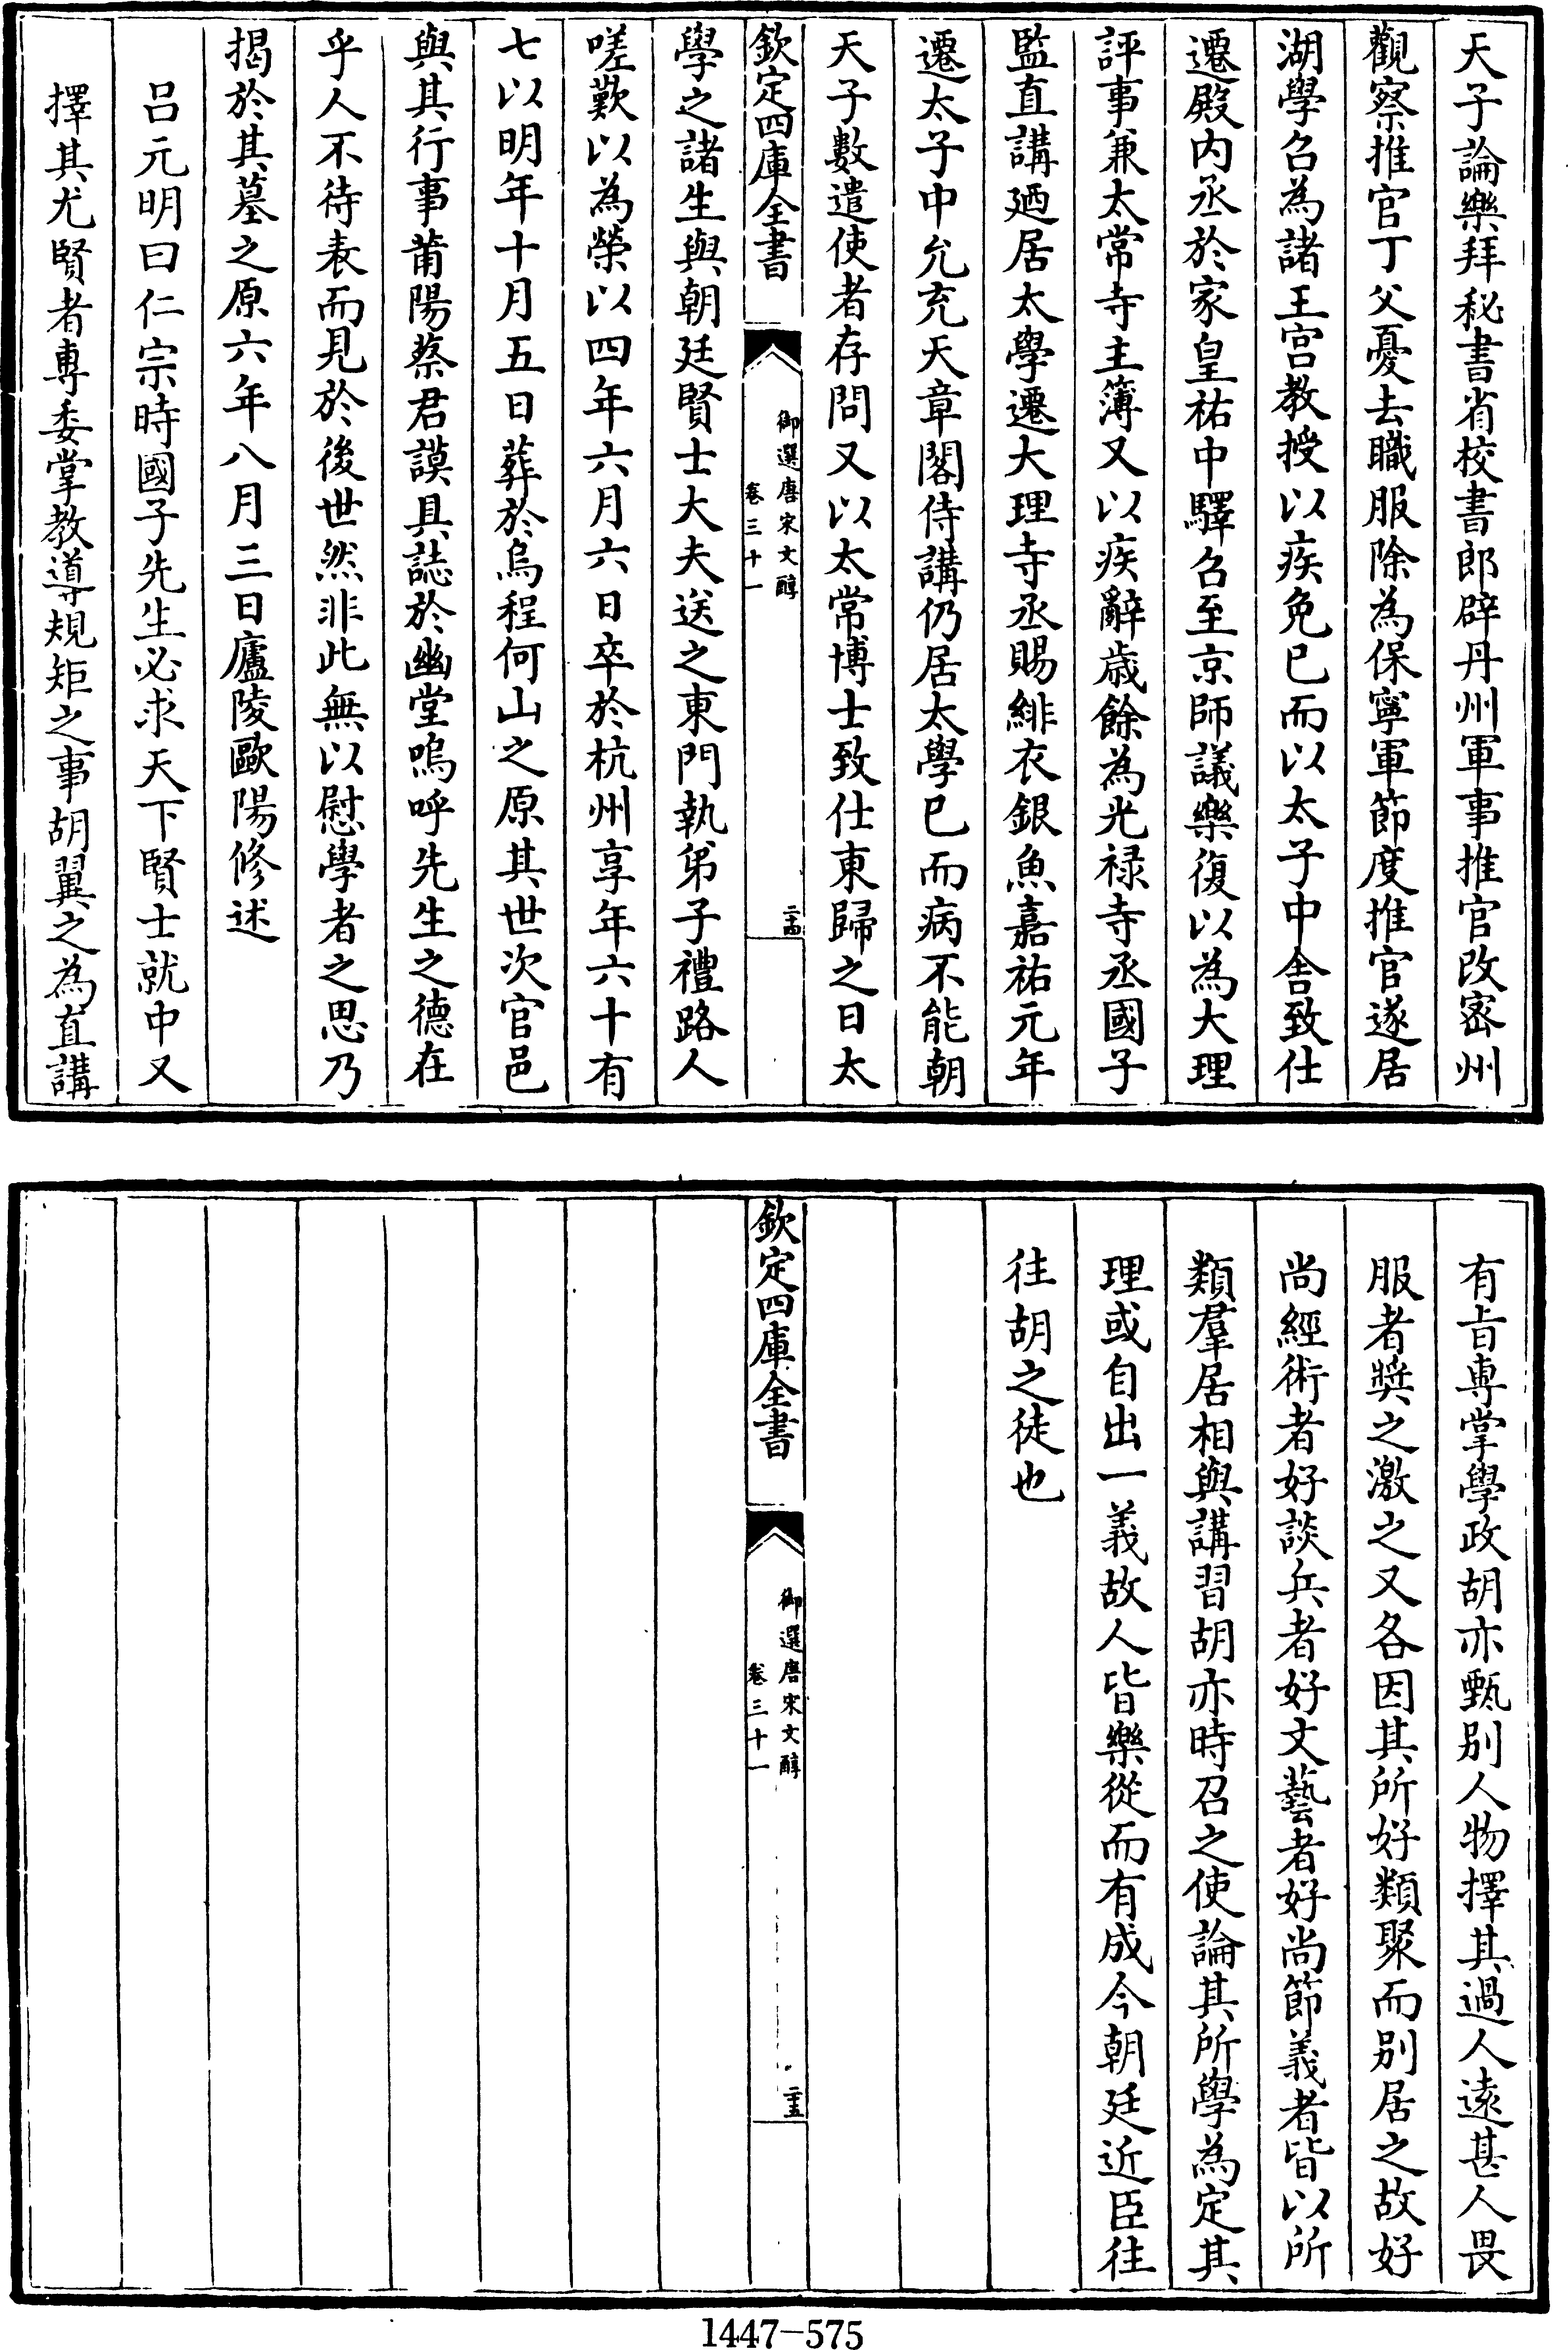 天子論樂拜秘書省校書郎辟丹州軍事推官改宻州
觀察推官丁父憂去職服除為保寧軍節度推官遂居
湖學召為諸王宫教授以疾免已而以太子中舍致仕
遷殿内丞於家皇祐中驛召至京師議樂復以為大理
評事兼太常寺主簿又以疾辭歲餘為光禄寺丞國子
監直講廼居太學遷大理寺丞賜緋衣銀魚嘉祐元年
遷太子中允充天章閣侍講仍居太學已而病不能朝
天子數遣使者存問又以太常博士致仕東歸之日太
欽定四庫全書
御選唐宋文醇
卷三十一
二十四
學之諸生與朝廷賢士大夫送之東門執弟子禮路人
嗟歎以為榮以四年六月六日卒於杭州享年六十有
七以明年十月五日葬於烏程何山之原其世次官邑
與其行事莆陽蔡君謨具誌於幽堂嗚呼先生之德在
乎人不待表而見於後世然非此無以慰學者之思乃
揭於其墓之原六年八月三日廬陵歐陽修述
吕元明曰仁宗時國子先生必求天下賢士就中又
擇其尤賢者専委掌教導規矩之事胡翼之為直講
有㫖専掌學政胡亦甄别人物擇其過人遠甚人畏
服者奬之激之又各因其所好類聚而别居之故好
尚經術者好談兵者好文藝者好尚節義者皆以所
類羣居相與講習胡亦時召之使論其所學為定其
理或自出一義故人皆樂從而有成今朝廷近臣往
往胡之徒也
欽定四庫全書
御選唐宋文醇
卷三十一
二十五
1447-575